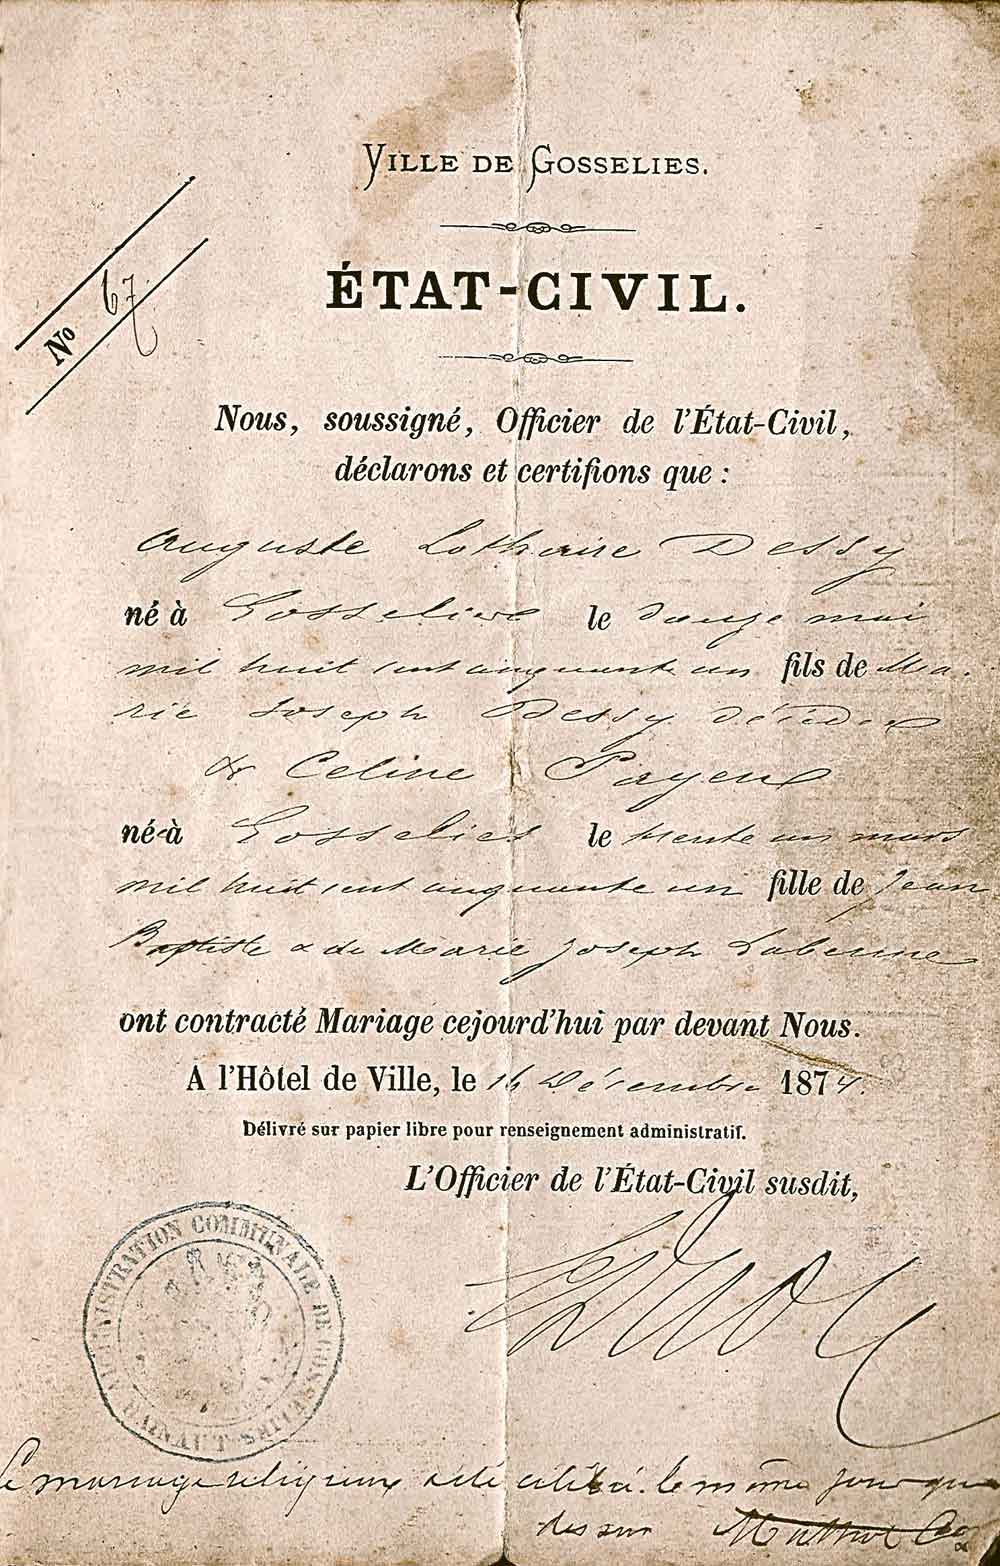 VILLE DE GOSSELIES.
ÉTAT-CIVIL.
No 67
Nous, soussigné, Officier de l'État-Civil,
déclarons et certifions que :
Auguste Lothaire Dessy
né à Gosselies le douze mai
mil huit cent cinquante un fils de Ma-
rie Joseph Dessy
& Celine Payen
né à Gosselies le trente un mars
mil huit cent cinquante un fille de Jean
Baptiste & de Marie Joseph
ont contracté Mariage cejourd'hui par devant Nous.
A l'Hôtel de Ville, le Décembre 1874.
Délivré sur papier libre pour renseignement administratif.
L'Officier de l'État-Civil susdit,
ADMINISTRATION COMMUNALE DE GOSSELIES
HAINAUT
le mariage religieux a été célébré le même jour que
dessus